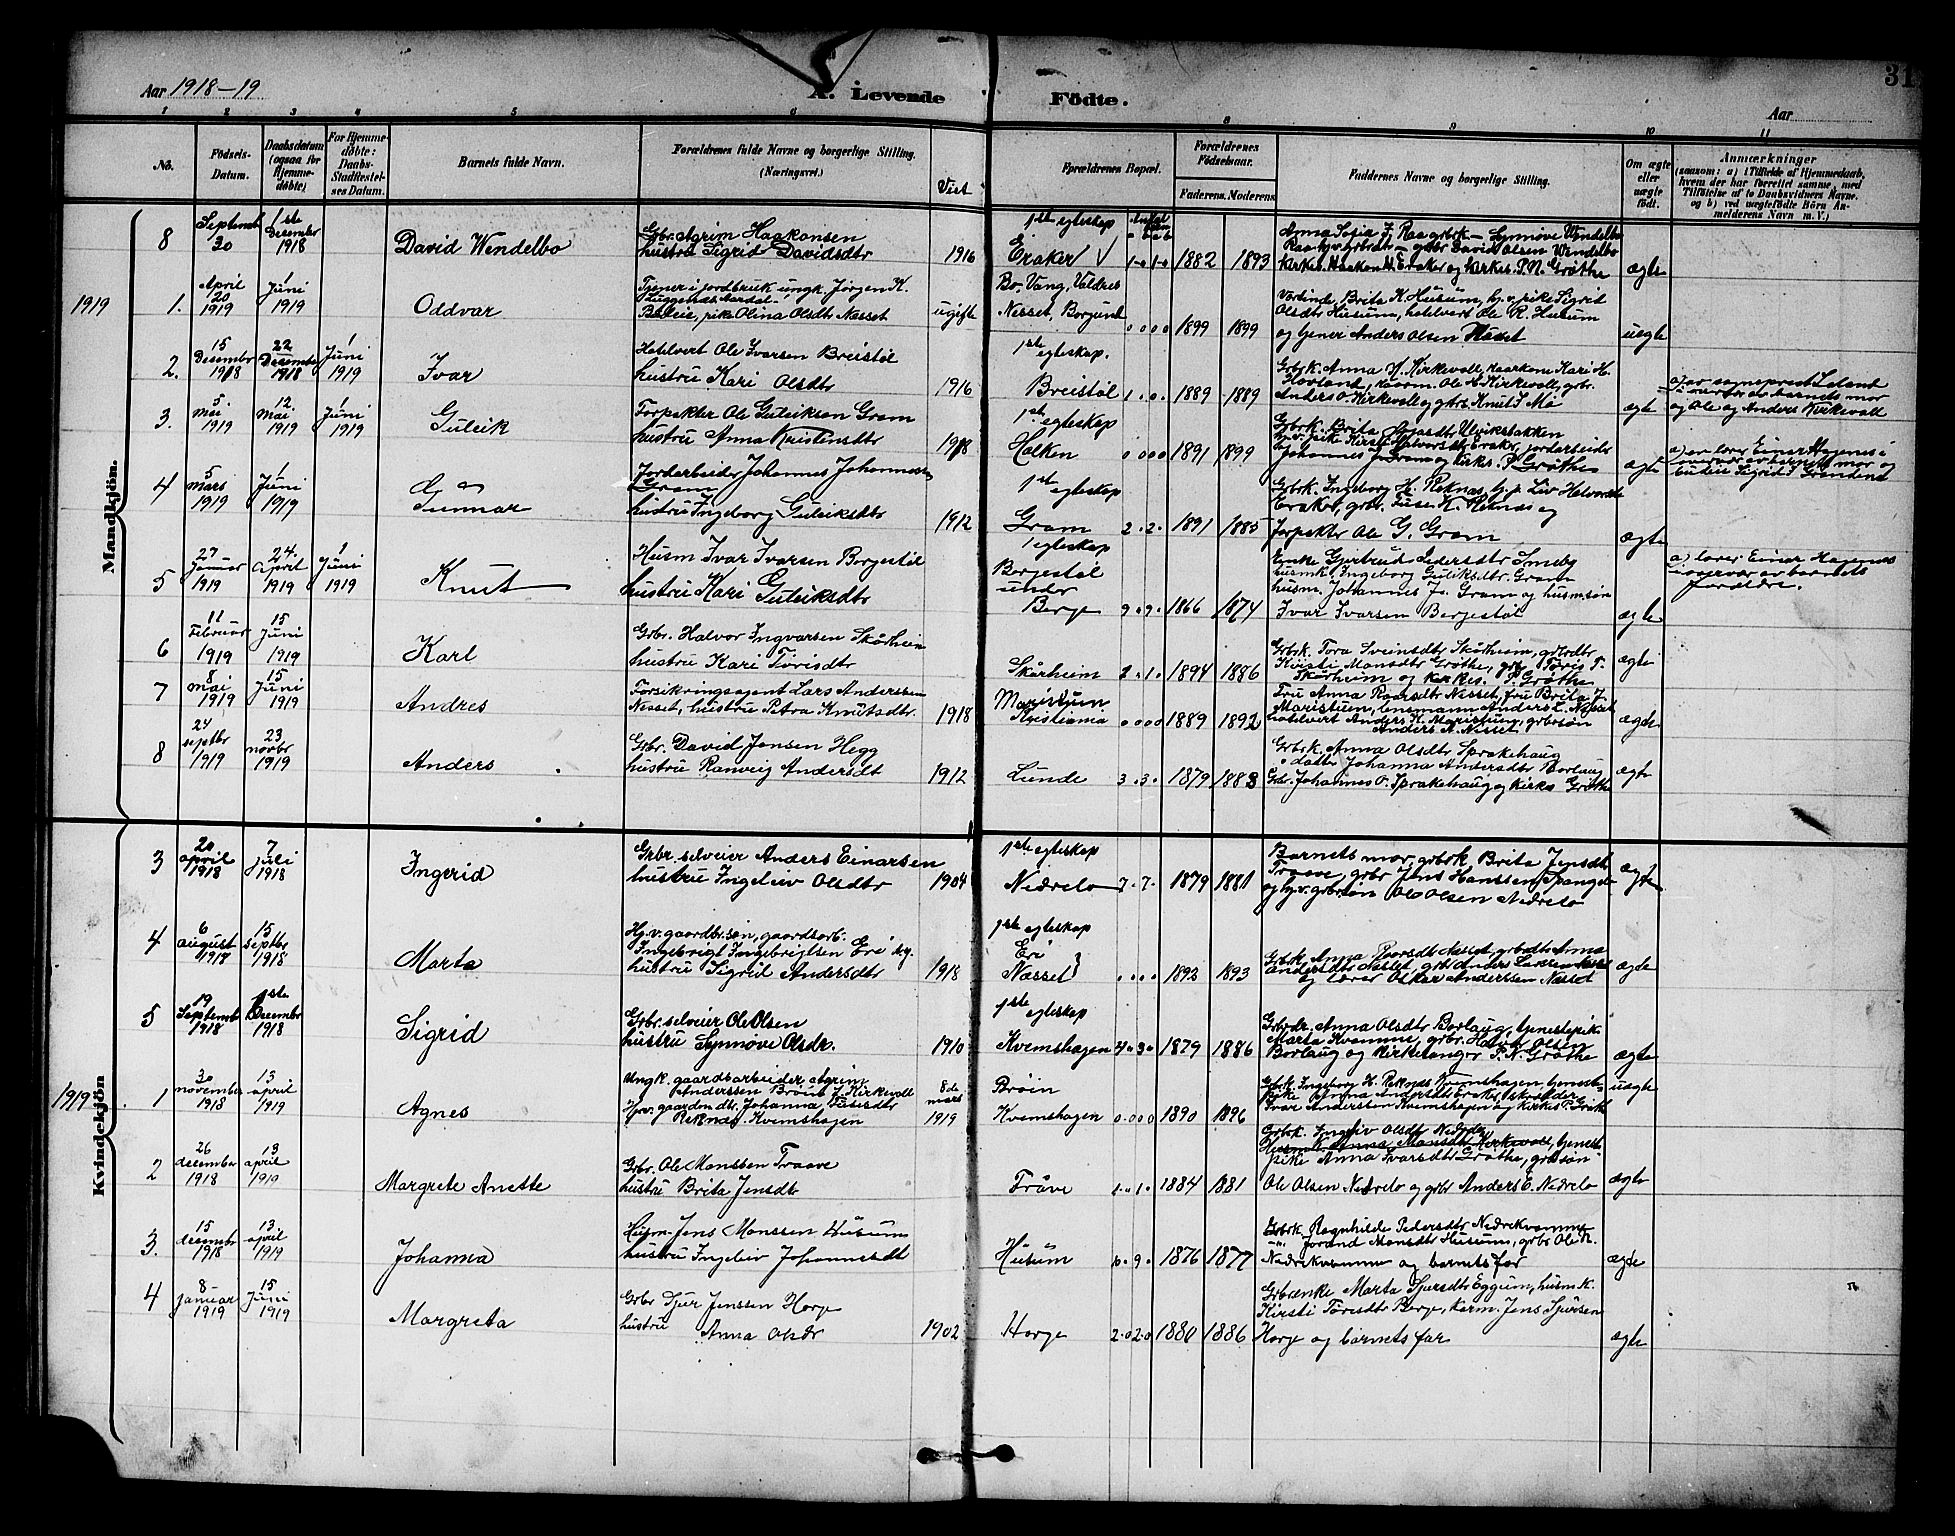 Aar 1918-19
A. Levende Födte.
Aar
31
1 2 3 4 5 6 8 9 10 11
No.
Födsels-Datum.
Daabsdatum (ogsaa for Hjemme-döbte)
For Hjemme-döbte: Daabs-Stadfestelses Datum.
Barnets fulde Navn.
Forældrenes fulde Navne og borgerlige Stilling. (Næringsvei.)
Viet
Forældrenes Bopæl.
Forældrenes Födselsaar.
Faderens. Moderens.
Faddernes Navne og borgerlige Stilling.
Om ægte eller uægte födt.
Anmærkninger
(saasom: a) i Tilfælde af Hjemmedaab,
hvem der har forrettet samme, med
Tilföielse af to Daabsvidners Navne.
og b) ved uægtefödte Börn An-
melderens Navn m. V.)
Mandkjön.
8 Septembr 30 1ste Desember 1918 David Wendelbo
Grbr. Agrim Haakonsen
hustru Sigrid Davidsdtr 1916
1ste egteskap
Eraker 1882 1893
Kirkes. Haakon H. Eraker og Kirkes. P. N. Grøthe ægte
1919
1. April 20 1919 1 Juni 1919 Oddvar
Tjener i jordbruk ungk. Jørgen K.
pike Olina Olsdtr Nesset ugifte
Bo, Vang, Valdres
Nesset, Borgund 0 0 0 0 1899 1899
Værtinde Brita K. Husum, hj.v. pike Sigrid
Olsdtr Husum, hotelvert Ole R. Husum
og tjener Anders Olsen uegte
2. 15 Desembr 1918 22 Desember 1918 1 Juni 1919 Ivar
Hotelvert Ole Ivarsen Breistøl
hustru Kari Olsdtr 1916
1ste egteskap.
Breistøl 1.0. 1889 1889
Grbrk. Anna Kirkevoll, kaarkone Kari H.
Hovland, kaarm. Ole H. Kirkevoll, grbr.
Anders O. Kirkevoll og grbr. Knut S. Mo ægte
a) av sogneprest
barnets mor
og Ole og Anders Kirkevoll
3. 5 Mai 1919 12 Mai 1919 1 Juni 1919 Guleik
Forpakter Ole Guleiksen Gram
hustru Anna Kristensdtr 1918
1ste egteskap
Holken 0 0 0 0 1891 1899
Johannes J. Gram og Kirkes. P. Grøthe ægte
a) av lærer Einar Hagenes i
4 5 Mars 1919 1 Juni 1919 Gunnar
Jordarbeider Johannes Johannessen
Gram
hustru Ingeborg Guleiksdtr 1912
1ste egteskap
Gram 2.2. 1891 1885
Grbrk. Ingeborg H. Reknes, hj.p. Liv Halvorsdtr
Eraker, grbr. K. Reknes og
forpakter Ole G. Gram ægte
5 27 Januar 1919 24. April 1919 1 Juni 1919 Knut
Husm Ivar Ivarsen Borgestøl
hustru Kari Guleiksdtr
1 egteskap
Borgestøl
under
Berge 9.9. 1866 1874
Enke Gjertrud Pedersdtr
husmk. Ingeborg Guleiksdtr. Gram
husm. Johannes Js. Gram og husm.søn
Ivar Ivarsen Borgestøl ægte
a) lærer Einar Hagenes
overvær av barnets
forældre.
6 11 Februar 1919 15 Juni 1919 Karl
Grbr. Halvor Ingvarsen Skårheim
hustru Kari Torisdtr
Skårheim 2.1. 1894 1886
Grbrk. Tora Sveinsdtr Skårheim, grbrdtr
Kirsti Monsdtr Grøthe, grbr Toris T.
Skårheim og kirkes. P. Grøthe ægte
7 8 Mai 1919 15 Juni 1919 Andres
Forsikringsagent Lars Anderssen
Nesset, hustru Petra Knutsdtr. 1918
Maristuen
Kristiania 0 0 0 0 1889 1892
Fru Anna Roarsdtr Nesset, fru Brita J.
Maristuen, lensmann Anders L. Nesset
hotelvert Anders K. Maristuen, grbrsøn
Anders A. Nesset ægte
8 24 septbr 1919 23 novbr 1919 Anders
Grbr. David Jensen Hegg
hustru Ranveig Andersdt 1912
Lunde 3.3. 1879 1883
Grbrk. Anna Olsdtr Sprakehaug
datter Johanna Andersdtr Borlaug
Grbr. Johannes P. Sprakehaug og Kirkes Grøthe ægte
Kvindekjön
3 20 april 1918 7 juli 1918 Ingerid
Grbr. selveier Anders Einarsen
hustru Ingeleiv Olsdtr 1904
1ste egteskap
Nedrelo 7.7. 1879 1881
Barnets mor, grbrk Brita Jensdtr
Traave, grbr Jens Hanssen Spangelo
og hj.v. grbrsøn Ole Olsen Nedrelo ægte
4 6 august 1918 15 septbr 1918 Marta
Hj.v. gaardbr.søn, gaardsarb.
Ingebrigt Ingebrigtsen Eri og
hustru Sigrid Andersdtr 1918
1ste egteskap
Eri
Nesset 1892 1893
Grbrk Anna Roarsdt Nesset, grbrdtr Anna
Andersdtr Nesset, grbr Anders Larssen Nesset
og lærer Oskar Anderssen Nesset ægte
5 19 Septembr 1918 1ste Decembr 1918 Sigrid
Grbr. selveier Ole Olsen
hustru Synnøve Olsdr. 1910
1ste egteskap
Kvemshagen 4.3. 1879 1886
Grbrdr. Anna Olsdtr Borlaug, tjenestepik
Marta Kvamme, grbr. Halvor Olsen
Borlaug og Kirkesanger P. N. Grøthe ægte
1919
1 30 november 1918 13 april 1919 Agnes
Ungk. gaardsarbeider, Agrim
Anderssen Brøin, Kirkevoll
Johanna
Reknes, Kvemshagen 8de mars 1919
Brøin
Kvemshagen 0.0 0 0 1890 1896
Grbrk. Ingeborg H. Reknes Kvemshagen, tjeneste-
pike Anna Andersdtr Eraker,
Ivar Anderssen Kvemshagen og kirkes P. Grøthe uægte
2 26 desember 1918 13 april 1919 Margrete Anette
Grbr. Ole Monssen Traave
hustru Brita Jensdtr
Tråve 1.1. 1884 1881
Grbrk. Ingeleiv Olsdtr Nedrelo,
Anna Monsdtr Kirkevoll, tjeneste-
pike Anna Ivarsdtr Grøthe, grbrsøn
Ole Olsen Nedrelo og grbr Anders E. Nedrelo ægte
3. 15 desembr 1918 13 april 1919 Johanna
Husm. Jens Monssen Husum
hustru Ingeleiv Johannesdt
Husum 9. 1876 1877
Grbrk. Ragnhilde Pedersdtr Nedrekvamme
Jorand Monsdtr Husum, grbr Ole K.
Nedrekvamme og barnets far ægte
4 8 januar 1919 15 Juni 1919 Margreta
Grbr Sjur Jenssen Horge
hustru Anna Olsdr 1902
Horge 2.0 2.0 1880 1886
Grbrenke Marta Sjursdtr Eggum, husm.k.
Kirsti Torisdtr Berge, kårm. Jens Sjursen
Horge og barnets far ægte